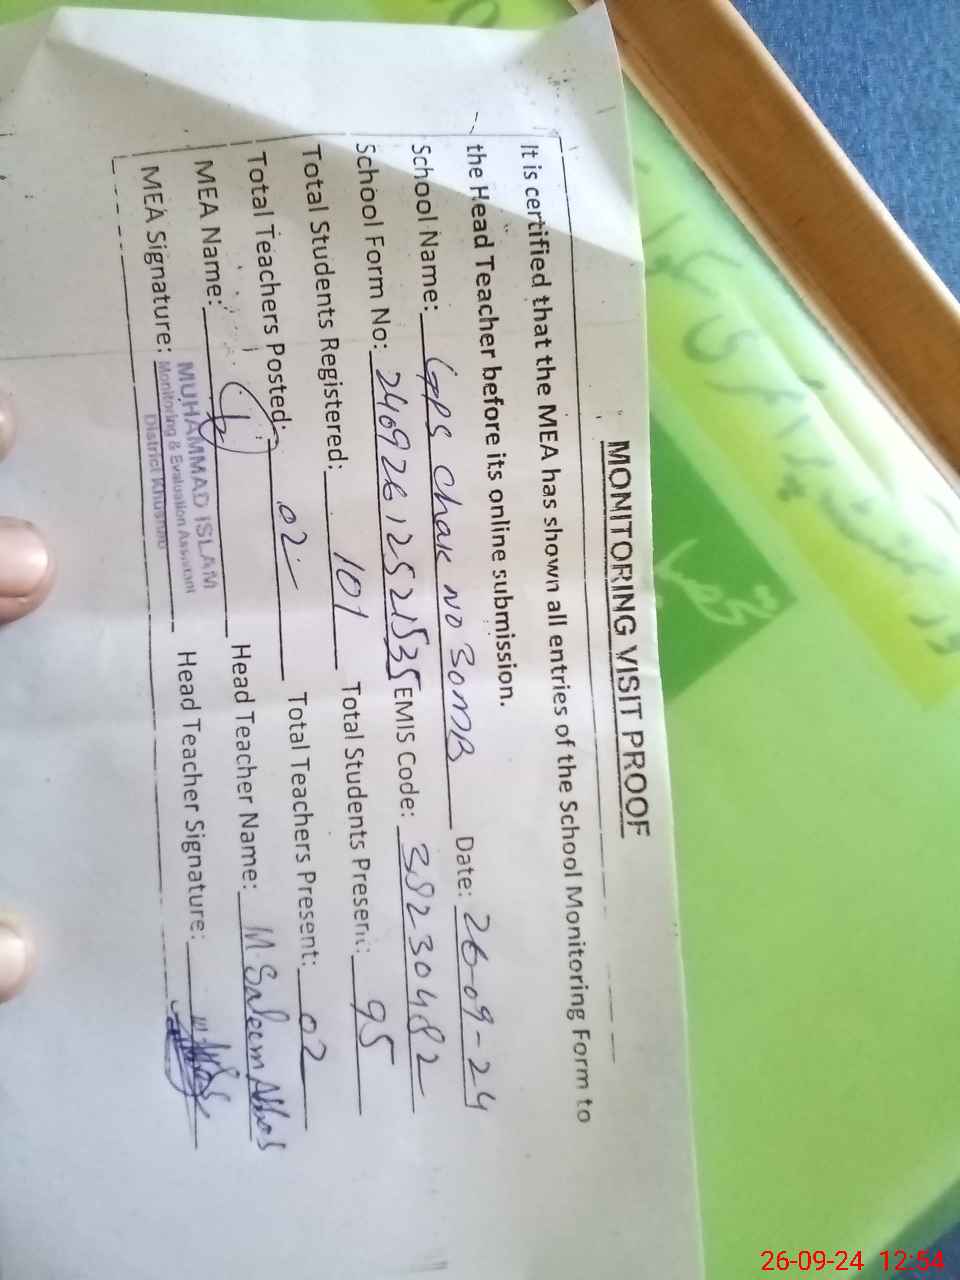 MONITORING VISIT PROOF
It is certified that the MEA has shown all entries of the School Monitoring Form to
the Head Teacher before its online submission.
School Name: GPS Chak NO 30MB Date: 26-09-24
School Form No: 24092612521535 EMIS Code: 38230482
Total Students Registered: 101 Total Students Present: 95
Total Teachers Posted: 02 Total Teachers Present: 02
MEA Name: Head Teacher Name: M. Saleem Abbas
MUHAMMAD ISLAM
MEA Signature: Monitoring & Evaluation Assistant Head Teacher Signature:
District Khushab
26-09-24 12:54